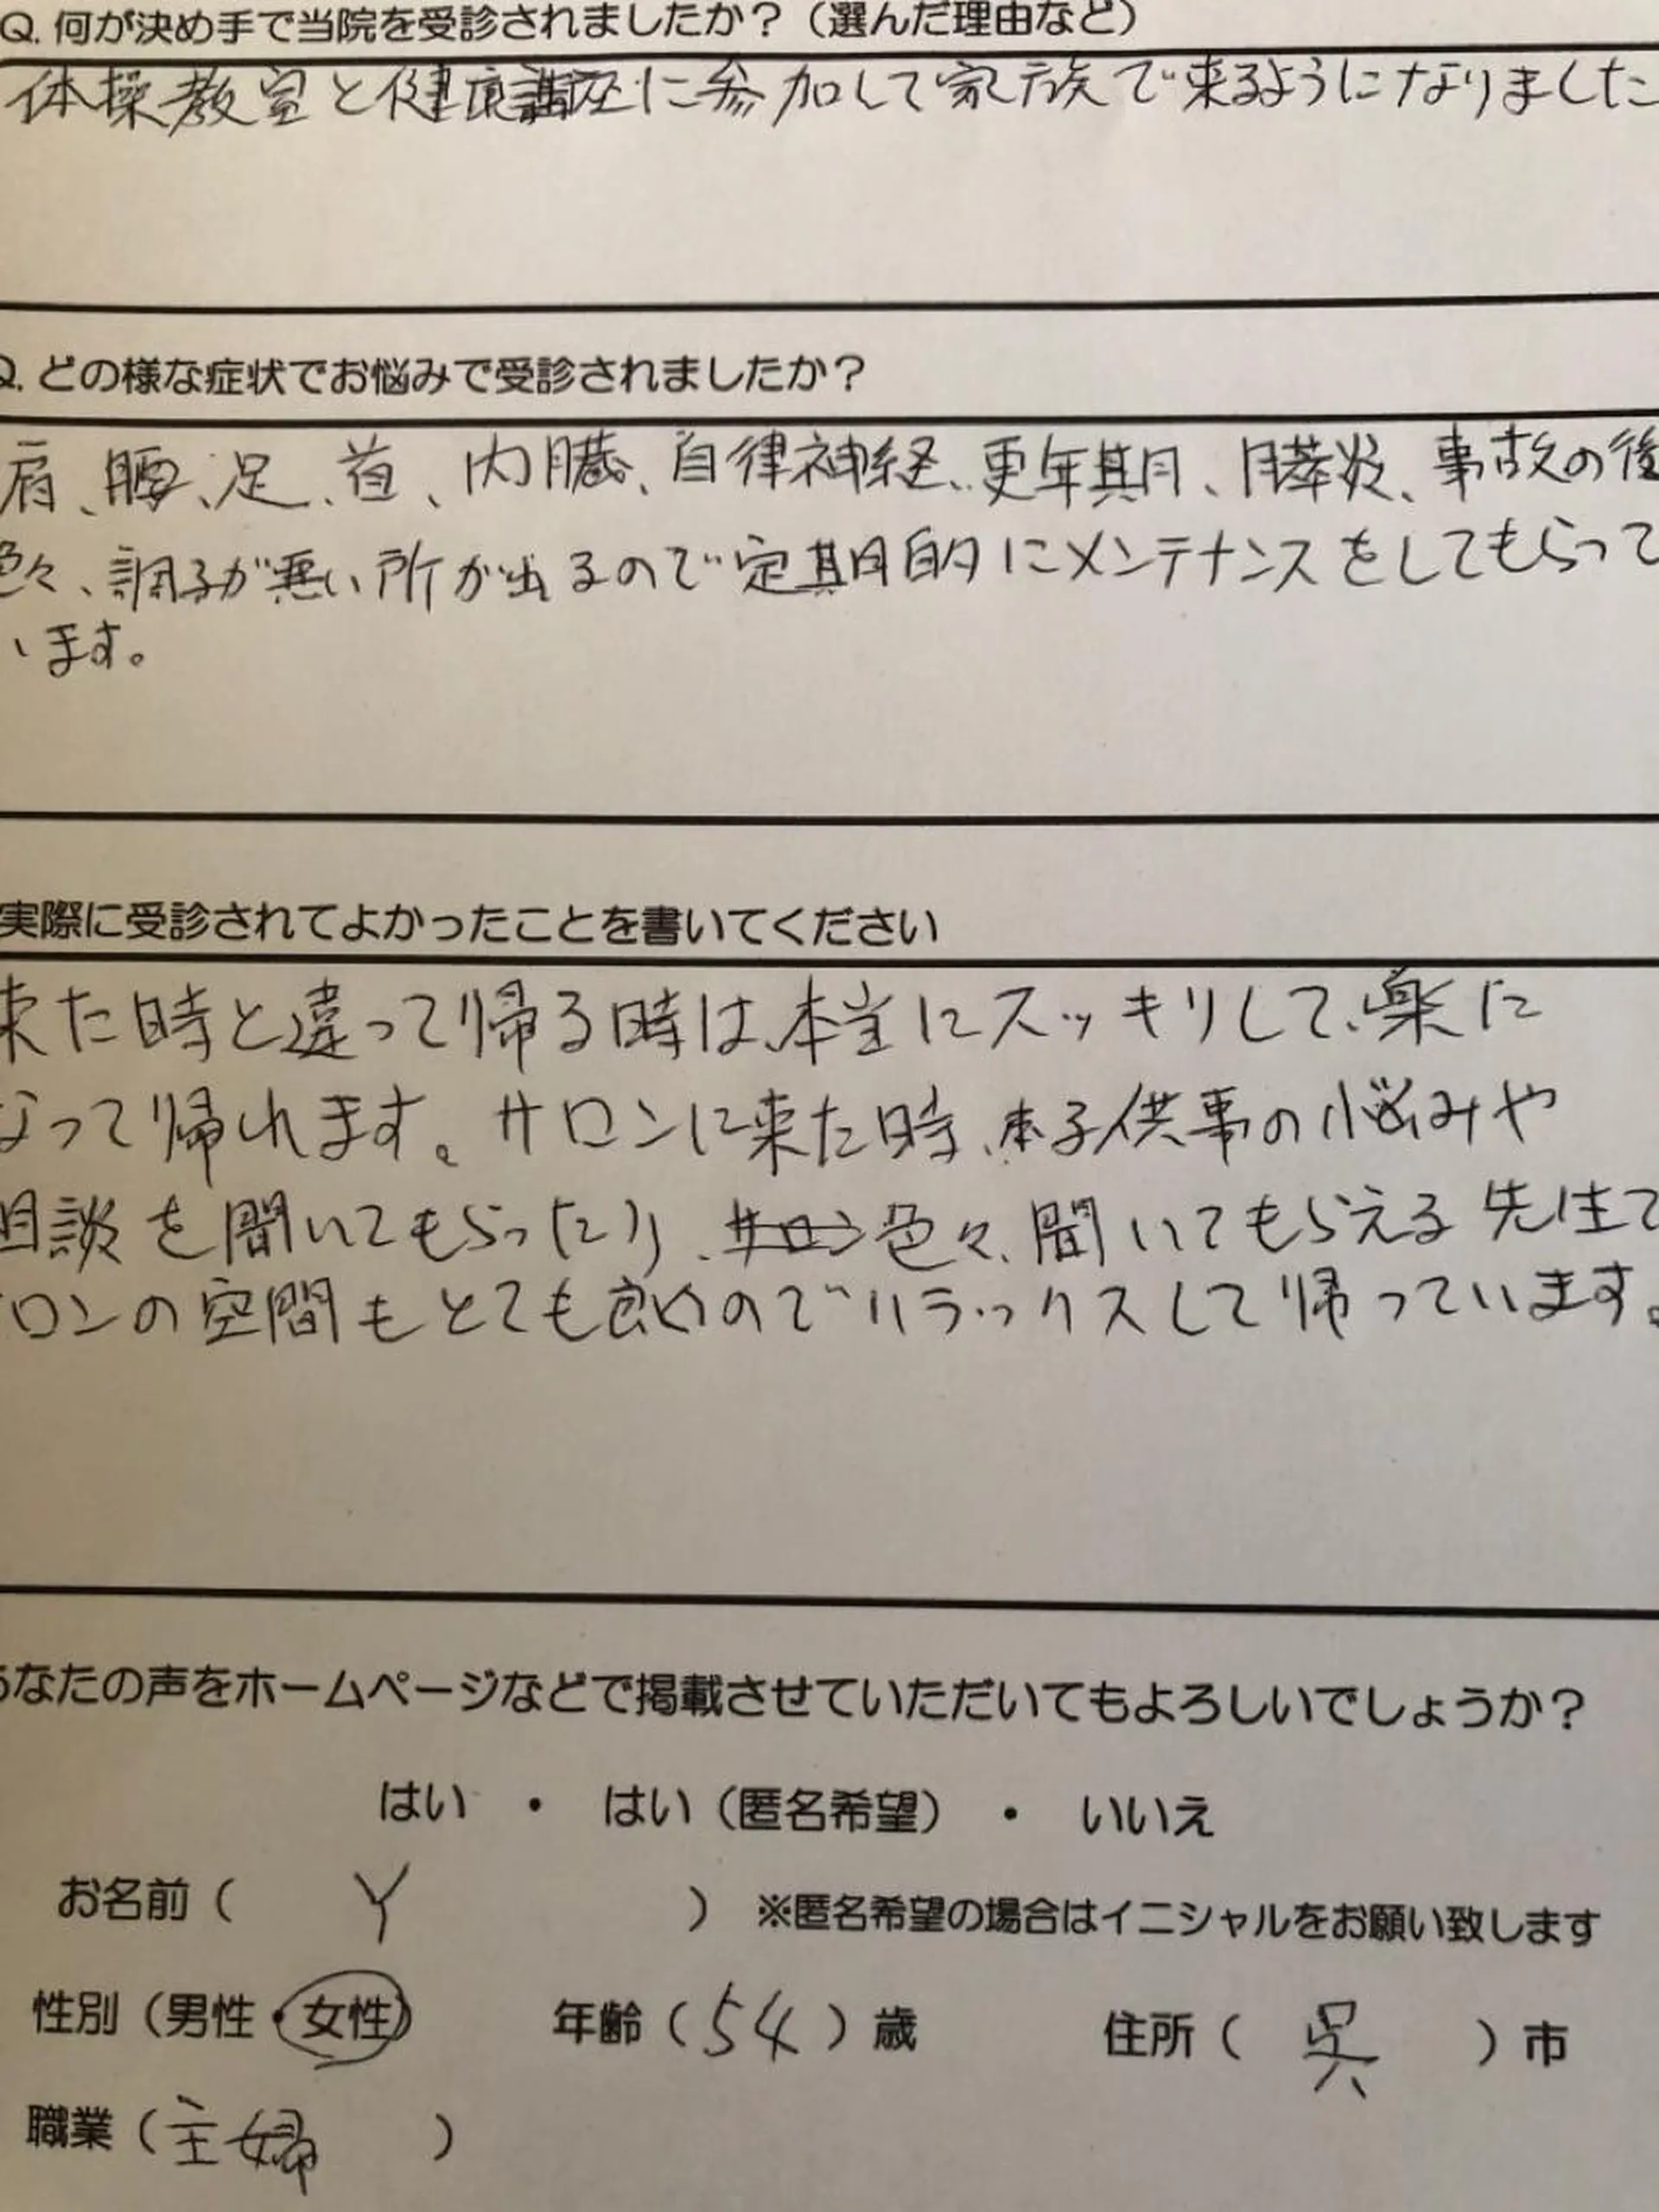 Q. 何が決め手で当院を受診されましたか？（選んだ理由など）
体操教室と健康講座に参加して家族で来るようになりました
Q. どの様な症状でお悩みで受診されましたか？
肩、腰、足、首、内臓、自律神経、更年期、膵炎、事故の後
色々、調子が悪い所が出るので定期的にメンテナンスをしてもらって
います。
実際に受診されてよかったことを書いてください
来た時と違って帰る時は、本当にスッキリして、楽に
なって帰れます。サロンに来た時、子供事の悩みや
相談を聞いてもらったり、色々、聞いてもらえる先生で
サロンの空間もとても良いのでリラックスして帰っています。
あなたの声をホームページなどで掲載させていただいてもよろしいでしょうか？
はい ・ はい（匿名希望） ・ いいえ
お名前（ Y ） ※匿名希望の場合はイニシャルをお願い致します
性別（男性・女性） 年齢（54）歳 住所（ 呉 ）市
職業（主婦 ）